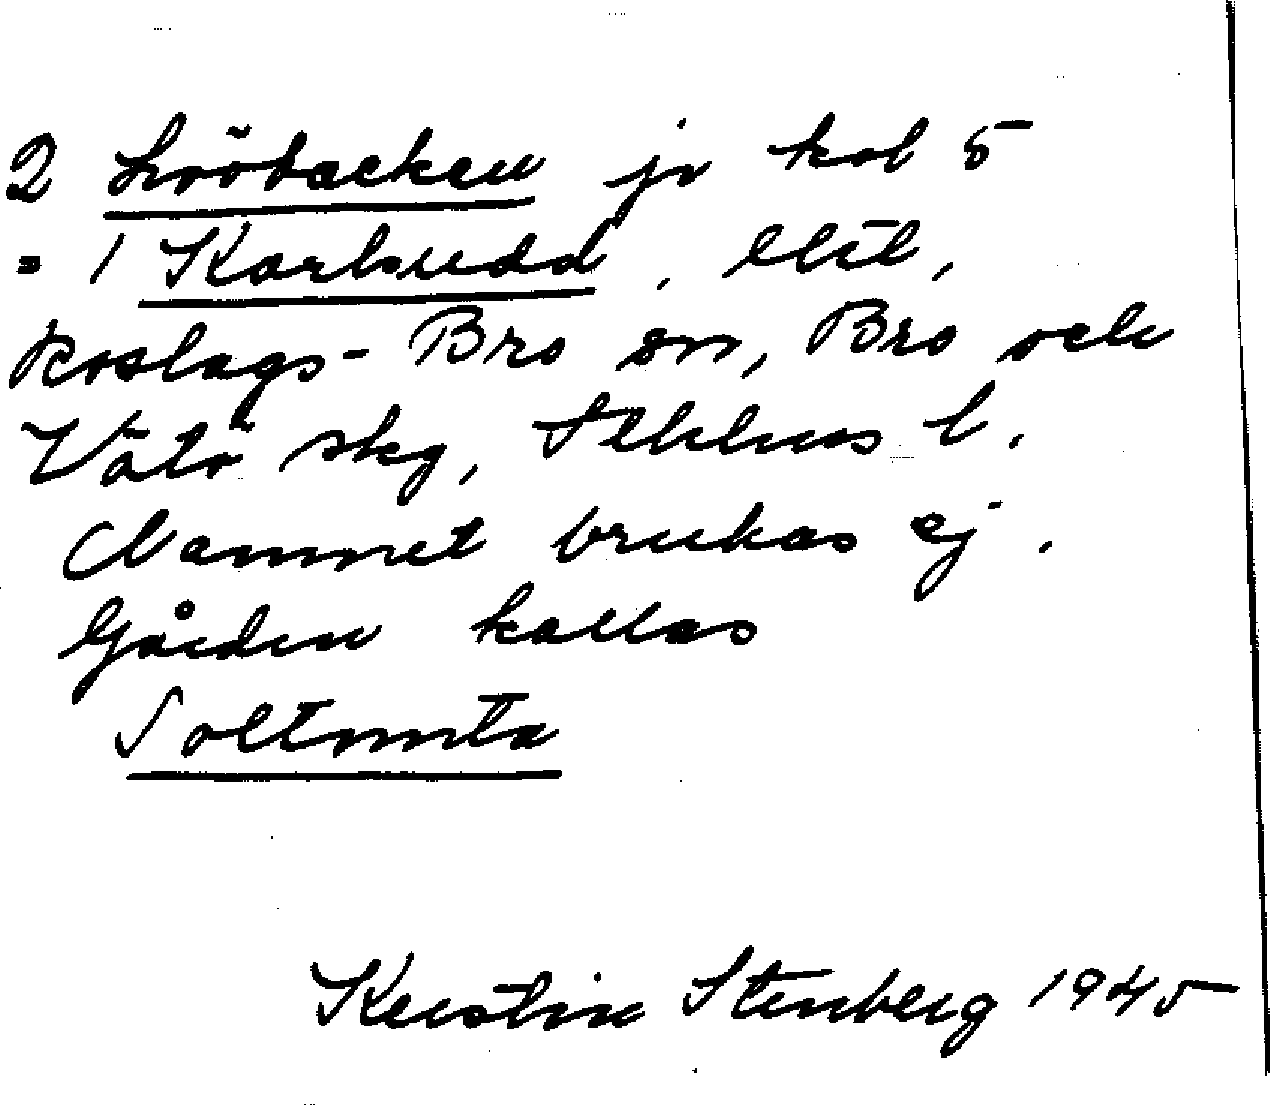 2 Lööbacken jr kol 5
= 1 Karludd, ltil,
Roslags-Bro sn, Bro och
Vätö skg, Sthlms l.
Namnet brukas ej.
Gården kallas
Soltomta
Kerstin Stenberg 1945